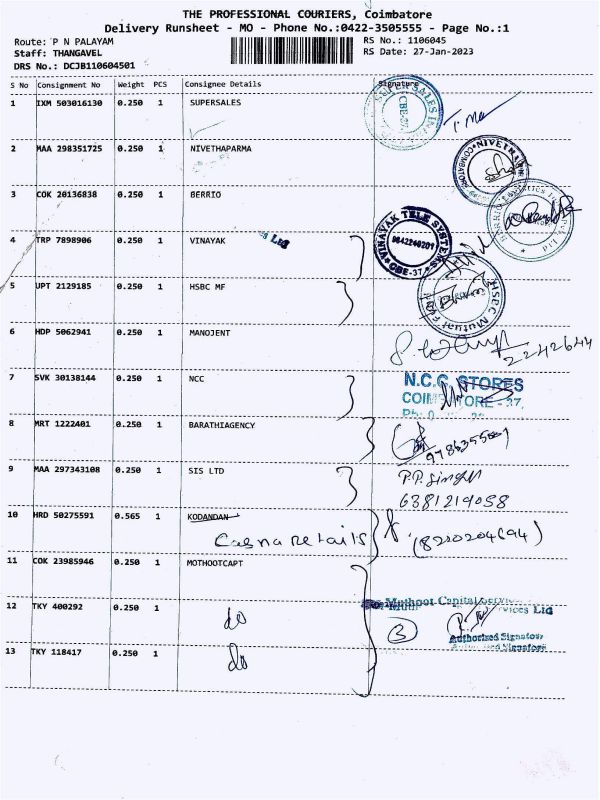 THE PROFESSIONAL COURIERS, Coimbatore
Delivery Runsheet - MO - Phone No.:0422-3505555 - Page No.:1
Route: P N PALAYAM
Staff: THANGAVEL
DRS No.: DCJB110604501
RS No.: 1106045
RS Date: 27-Jan-2023
S No Consignment No Weight PCS Consignee Details Signature
1 IXM 503016130 0.250 1 SUPERSALES
CBE-37
2 MAA 298351725 0.250 1 NIVETHAPARMA
3 COK 20136838 0.250 1 BERRIO
4 TRP 7898906 0.250 1 VINAYAK
VINAYAK TELE SYSTEMS
CBE-37
5 UPT 2129185 0.250 1 HSBC MF
HSBC Mutual
6 HDP 5062941 0.250 1 MANOJENT
2242644
7 SVK 30138144 0.250 1 NCC
N.C.C. STORES
8 MRT 1222401 0.250 1 BARATHIAGENCY
9 MAA 297343108 0.250 1 SIS LTD
P.P. Singh
6381219058
10 HRD 50275591 0.565 1 KODANDAN
Casna retails
(8200204694)
11 COK 23985946 0.250 1 MOTHOOTCAPT
Muthoot Capital Services Ltd
12 TKY 400292 0.250 1 do
3
Authorised Signatory
13 TKY 118417 0.250 1 do